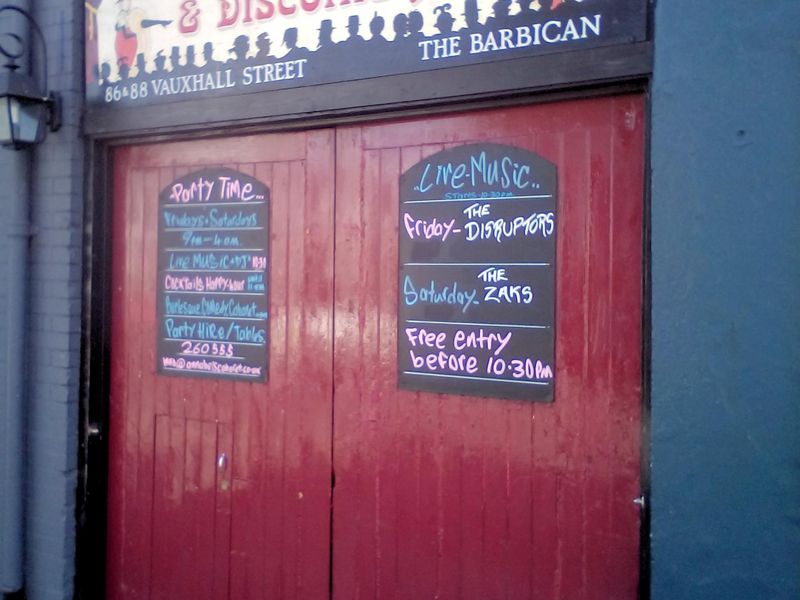 & DISCO
86&88 VAUXHALL STREET THE BARBICAN
Party Time...
Fridays & Saturdays
9pm - 4am
Live Music & DJ's 10:30
Cocktails Happy-hour until
Burlesque Comedy Cabaret
Party Hire/Tables
260555
..Live-Music..
STARTS 10:30pm
Friday - THE DISRUPTORS
Saturday - THE ZAKS
Free entry
before 10.30pm